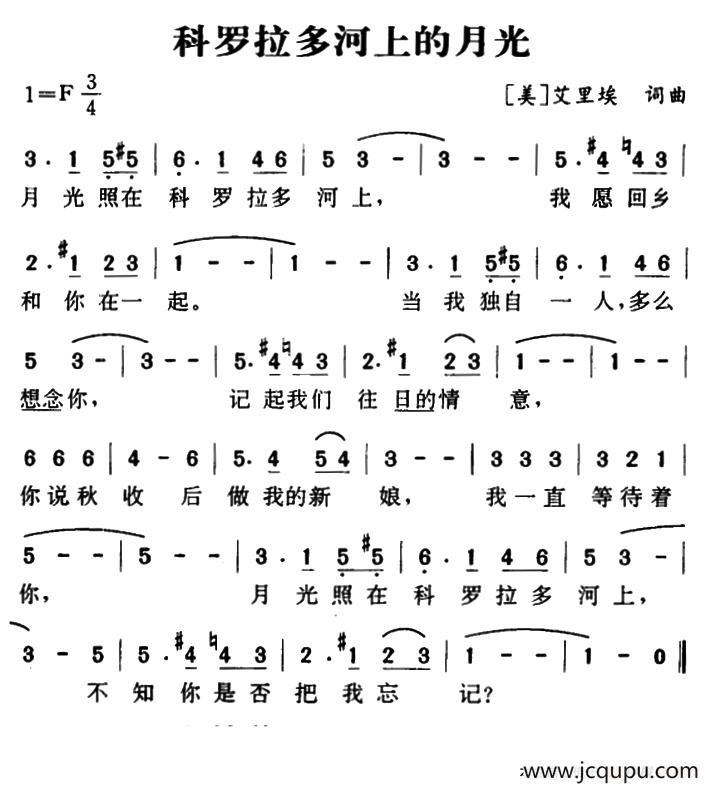 科罗拉多河上的月光
1=F 3/4 [美]艾里埃 词曲
3· 1 5 #5 | 6· 1 4 6 | 5 3 - | 3 - - | 5· #4 ♮4 3 |
月光照在科罗拉多河上, 我愿回乡
2· #1 2 3 | 1 - - | 1 - - | 3· 1 5 #5 | 6· 1 4 6 |
和你在一起。 当我独自一人,多么
5 3 - | 3 - - | 5· #4 ♮4 3 | 2· #1 2 3 | 1 - - | 1 - - |
想念你, 记起我们往日的情意,
6 6 6 | 4 - 6 | 5· 4 5 4 | 3 - - | 3 3 3 | 3 2 1 |
你说秋收后做我的新娘, 我一直等待着
5 - - | 5 - - | 3· 1 5 #5 | 6· 1 4 6 | 5 3 - |
你, 月光照在科罗拉多河上,
3 - 5 | 5· #4 ♮4 3 | 2· #1 2 3 | 1 - - | 1 - 0 ‖
不知你是否把我忘记?
www.jcqupu.com